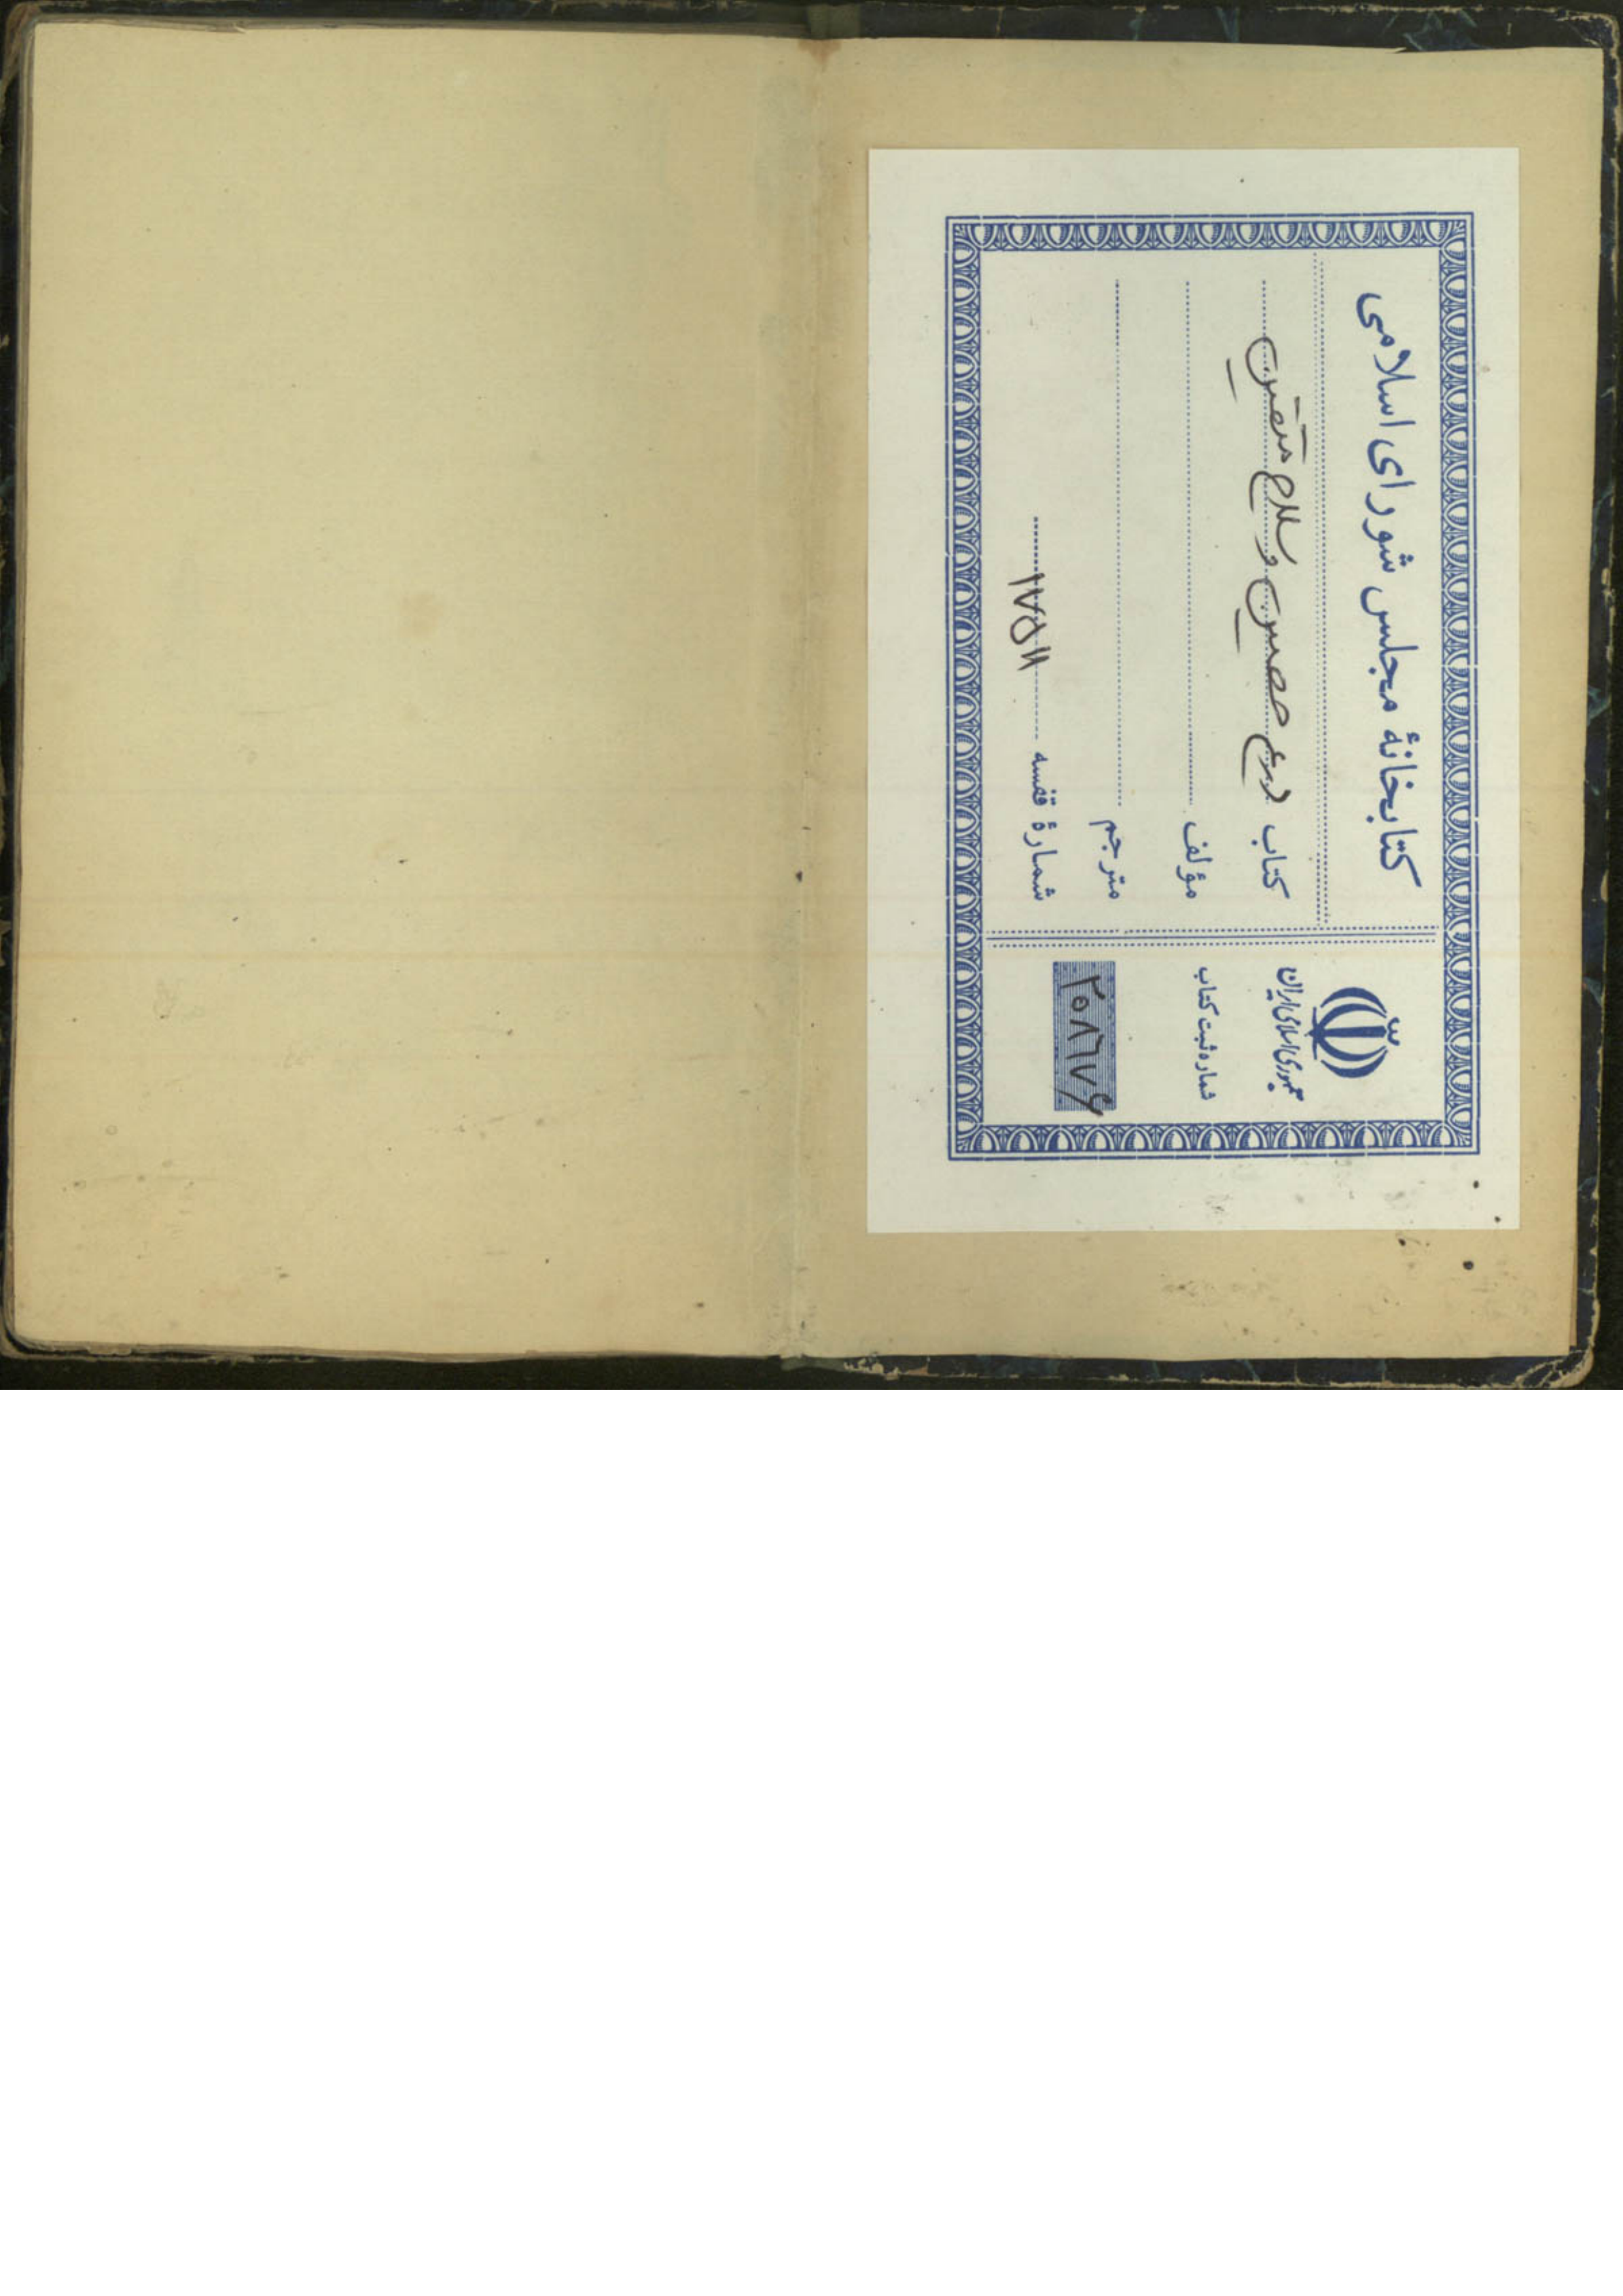 کتابخانهٔ مجلس شورای اسلامی
کتاب درع حصین و سلاح متقین
مؤلف
مترجم
شمارهٔ قفسه ۱۷۵۱۱
جمهوری اسلامی ایران
شماره ثبت کتاب
۲۰۸٦۷۶